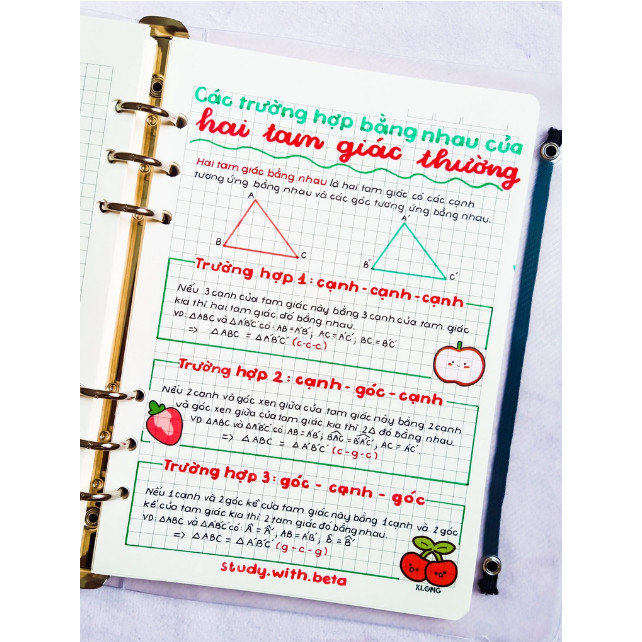 Các trường hợp bằng nhau của
hai tam giác thường
Hai tam giác bằng nhau là hai tam giác có các cạnh
tương ứng bằng nhau và các góc tương ứng bằng nhau.
A
B
C
A'
B'
C'
Trường hợp 1: cạnh - cạnh - cạnh
Nếu 3 cạnh của tam giác này bằng 3 cạnh của tam giác
kia thì hai tam giác đó bằng nhau.
VD: △ABC và △A'B'C' có: AB = A'B'; AC = A'C'; BC = B'C'
=> △ABC = △A'B'C' (c-c-c)
Trường hợp 2: cạnh - góc - cạnh
Nếu 2 cạnh và góc xen giữa của tam giác này bằng 2 cạnh
và góc xen giữa của tam giác kia thì 2△ đó bằng nhau.
VD: △ABC và △A'B'C' có: AB = A'B'; BAC = B'A'C'; AC = A'C'
=> △ABC = △A'B'C' (c-g-c)
Trường hợp 3: góc - cạnh - góc
Nếu 1 cạnh và 2 góc kề của tam giác này bằng 1 cạnh và 2 góc
kề của tam giác kia thì 2 tam giác đó bằng nhau.
VD: △ABC và △A'B'C' có: Â = Â'; AB = A'B'; B̂ = B̂'
=> △ABC = △A'B'C' (g-c-g)
study.with.beta
KLONG